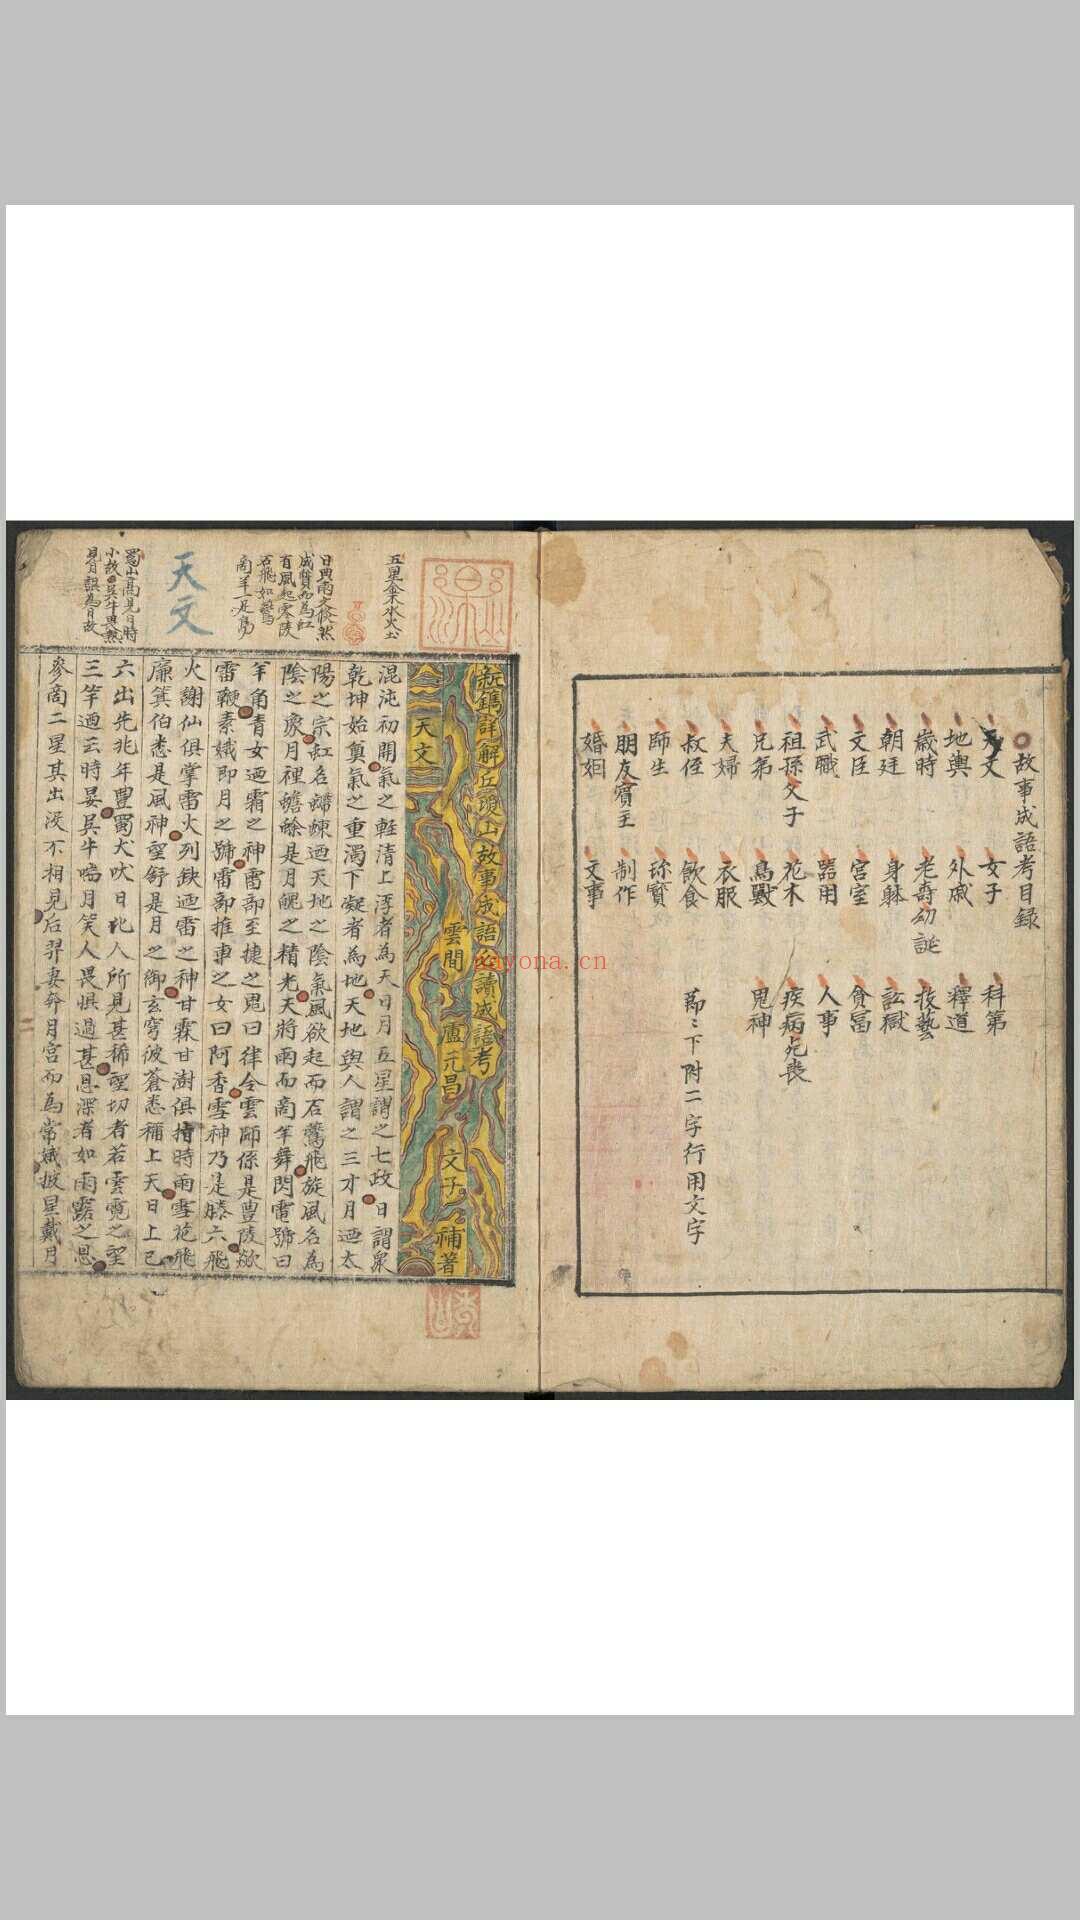 故事成語考目録
天文 女子 科第
地輿 外戚 釋道
歳時 老壽幼誕 技藝
朝廷 身躰 訟獄
文臣 宮室 貪富
武職 器用 人事
祖孫父子 花木 疾病死喪
兄弟 鳥獸 鬼神
夫婦 衣服
叔侄 飲食 莭〻下附二字行用文字
師生 珎寳
朋友賓主 制作
婚姻 文事
五星金木水火土
日與雨交倐然
成質而為虹
百風起零陵
石飛如鷰
商羊一足鳥
天文
蜀山高見日時
小故吳牛畏熱
見月誤為日故
新鐫詳解丘瓊山故事成語必讀成語考
雲間 盧元昌 文子 補著
天文
混沌初開氣之軽清上浮者為天日月五星謂之七政日謂衆
乾坤始奠氣之重濁下凝者為地天地與人謂之三才月廼太
陽之宗虹名螮蝀廼天地之陰氣風欲起而石鷰飛旋風名為
陰之象月裡蟾蜍是月魄之精光天將雨而商羊舞閃電號曰
羊角青女廼霜之神雷部至捷之鬼曰律令雲師係是豊隆欻
雷鞭素娥即月之號雷部推車之女曰阿香雪神乃是滕六飛
火謝仙俱掌雷火列缺廼雷之神甘霖甘澍俱指時雨雪花飛
廉箕伯悉是風神望舒是月之御玄穹彼蒼悉稱上天日上已
六出先兆年豊蜀犬吠日比人所見甚稀望切者若雲霓之望
三竿廼云時晏吳牛喘月笑人畏惧過甚恩深者如雨露之恩
參商二星其出没不相見后羿妻奔月宮而為常娥披星戴月
nayona.cn